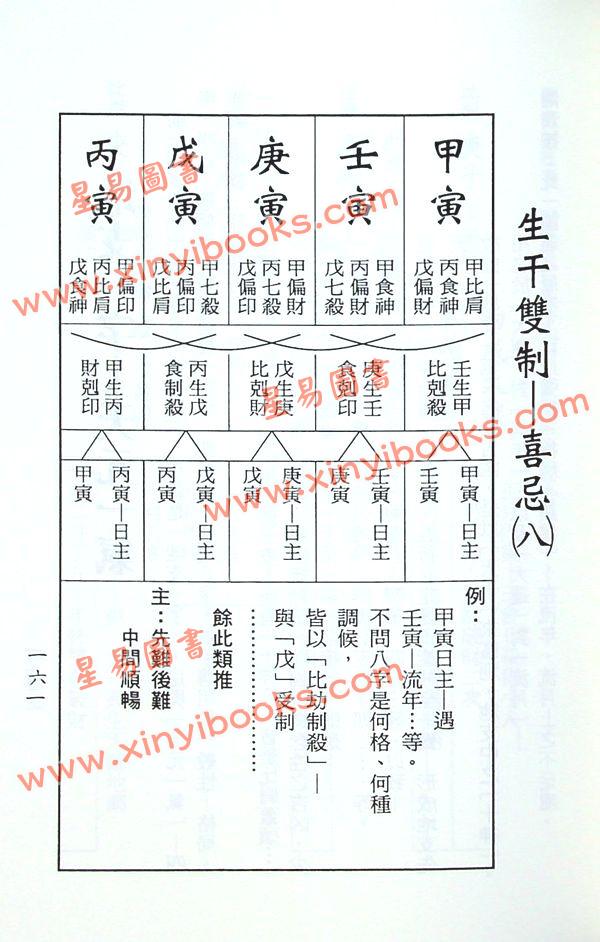 生干雙制—喜忌(八)
甲寅
甲比肩
丙食神
戊偏財
壬寅
甲食神
丙偏財
戊七殺
庚寅
甲偏財
丙七殺
戊偏印
戊寅
甲七殺
丙偏印
戊比肩
丙寅
甲偏印
丙比肩
戊食神
壬生甲
比剋殺
庚生壬
食剋印
戊生庚
比剋財
丙生戊
食制殺
甲生丙
財剋印
甲寅—日主
壬寅
壬寅—日主
庚寅
庚寅—日主
戊寅
戊寅—日主
丙寅
丙寅—日主
甲寅
例：
甲寅日主—遇
壬寅—流年…等。
不問八字是何格、何種
調候，
皆以「比劫制殺」—
與「戊」受制
…………………
餘此類推
主：先難後難
中間順暢
一六一
星易圖書
www.xinyibooks.com
星易圖書
www.xinyibooks.com
星易圖書
www.xinyibooks.com